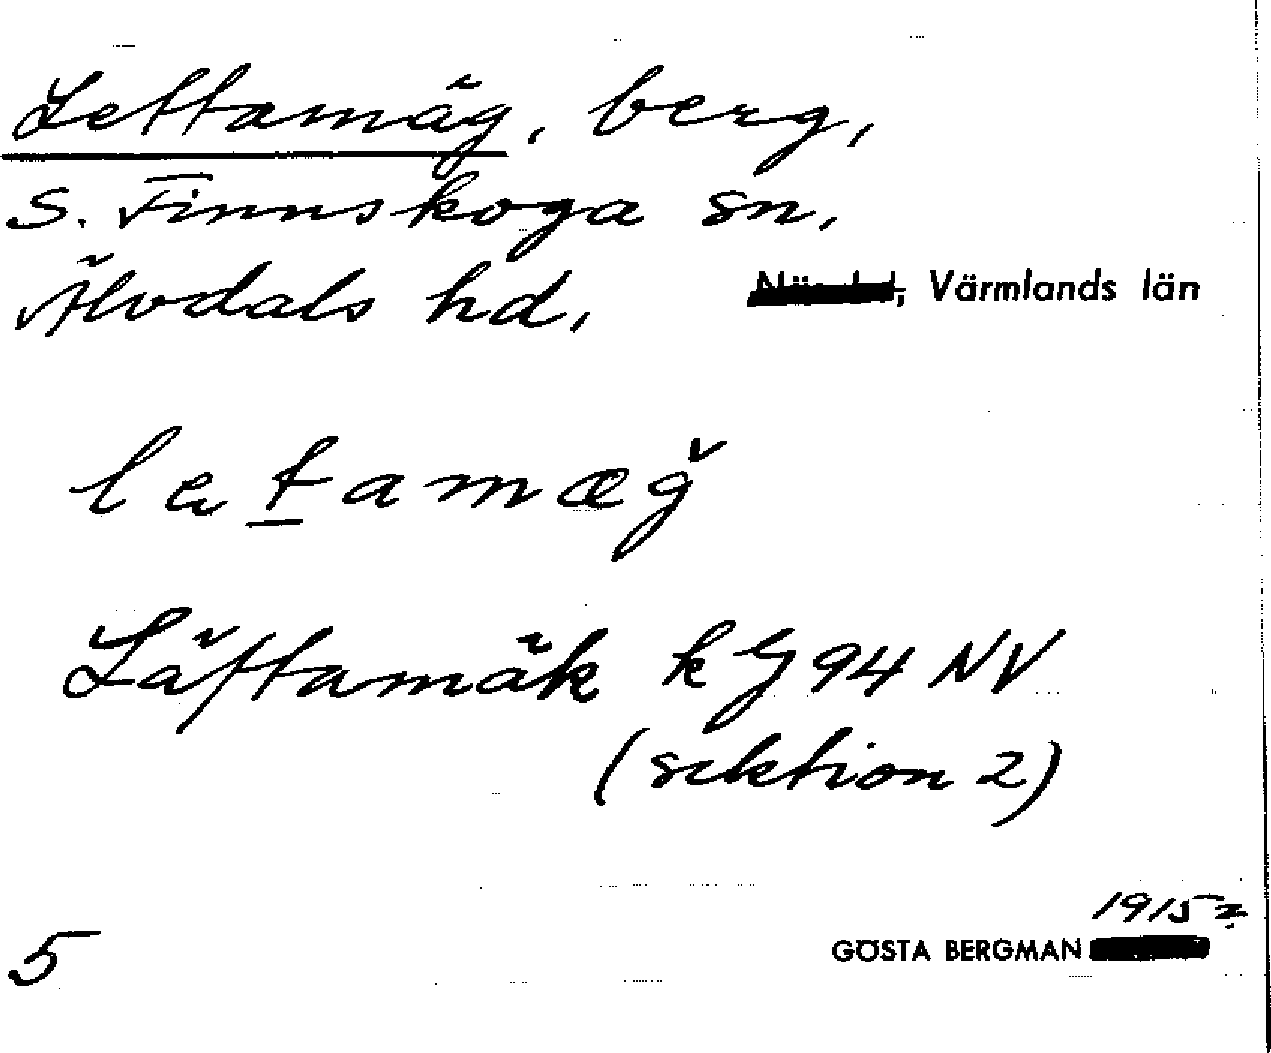 Lettamäg, berg,
S. Finnskoga sn,
Älvdals hd, Värmlands län
letamæğ
Läftamäk kG 94 NV
(sektion 2)
1915
5 GÖSTA BERGMAN